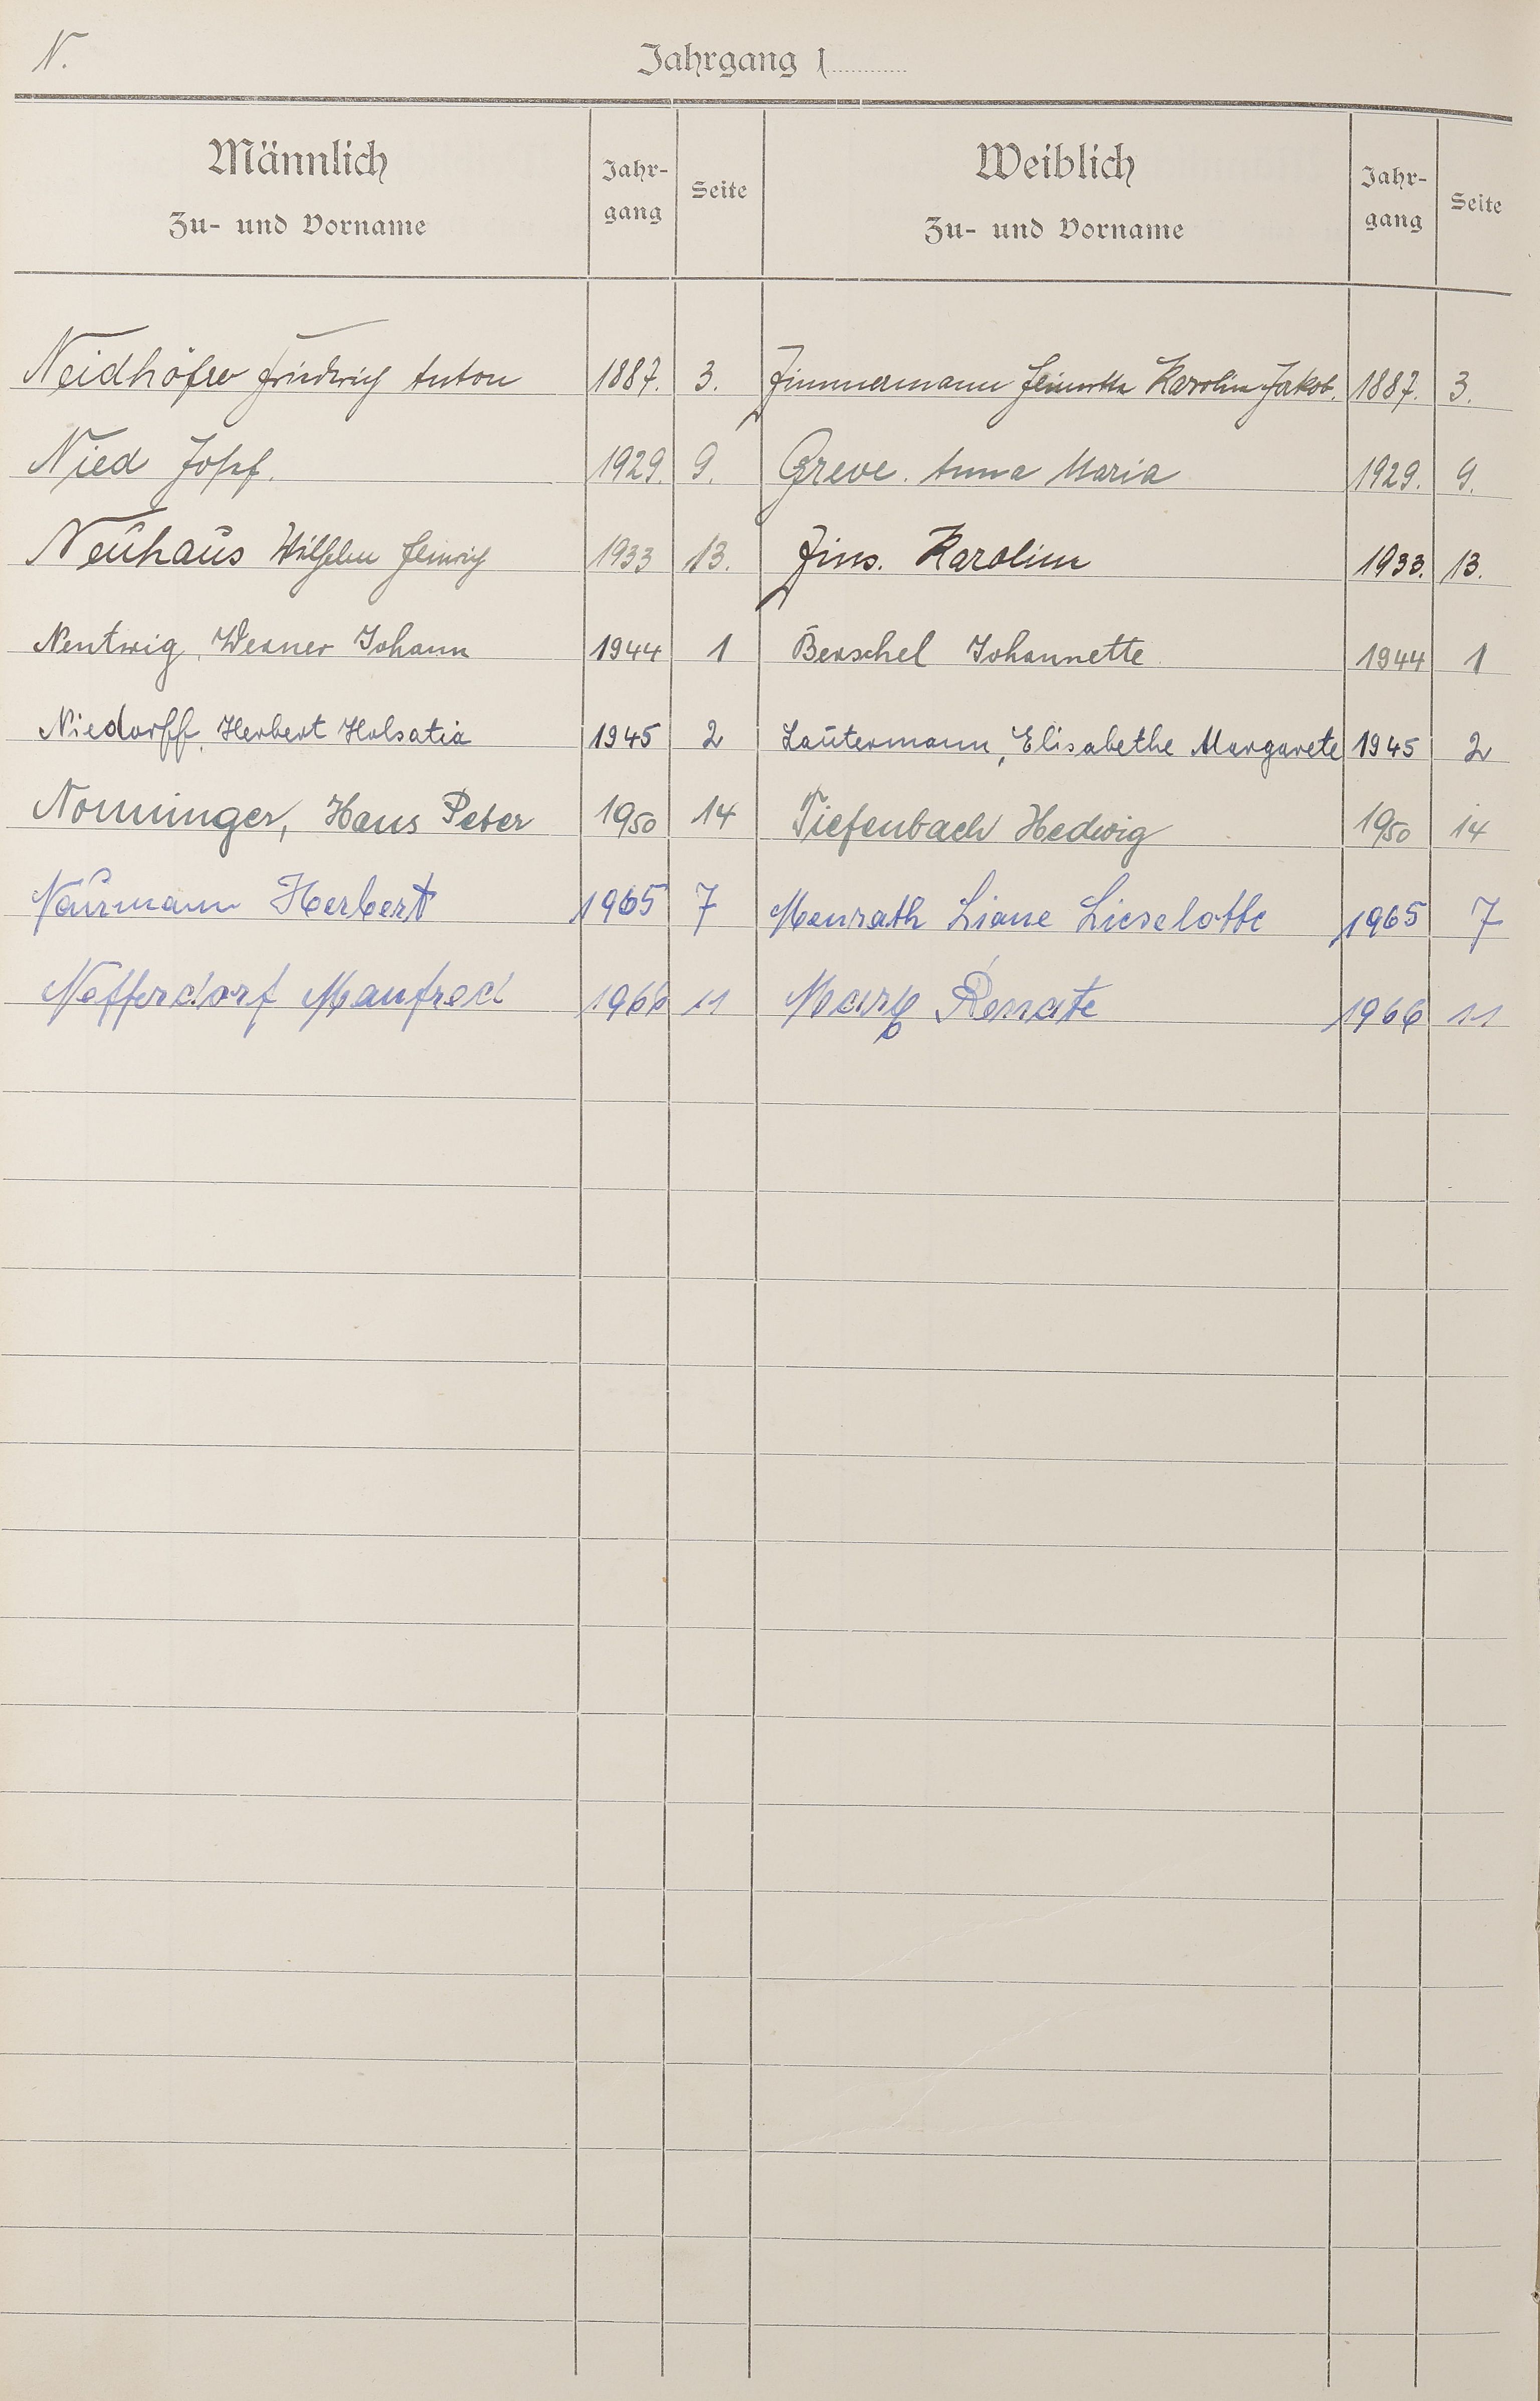 N.
Jahrgang 1
Männlich
Zu- und Vorname
Jahr-
gang
Seite
Weiblich
Zu- und Vorname
Jahr-
gang
Seite
Neidhöfer Friedrich Anton 1887. 3. Zimmermann Henriette Karolin Jakob. 1887. 3.
Nied Josef. 1929. 9. Greve. Anna Maria 1929. 9.
Neuhaus Wilhelm Heinrich 1933 13. Zins. Karoline 1933. 13.
Nentwig, Werner Johann 1944 1 Berschel Johannette 1944 1
Niedorff, Herbert Holsatia 1945 2 Lautermann, Elisabethe Margarete 1945 2
Nonninger, Hans Peter 1950 14 Tiefenbach Hedwig 1950 14
Naurmann Herbert 1965 7 Menrath Liane Lieselotte 1965 7
Nefferdorf Manfred 1966 11 Marx Renate 1966 11